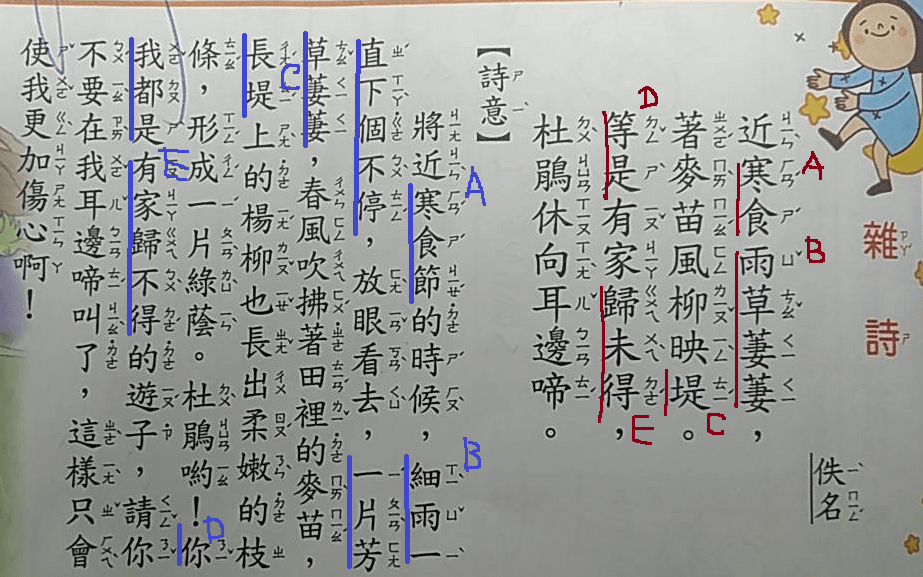 雜詩
佚名
A
B
近寒食雨草萋萋，
著麥苗風柳映堤。
C
D
等是有家歸未得，
E
杜鵑休向耳邊啼。
【詩意】
A
B
將近寒食節的時候，細雨一
直下個不停，放眼看去，一片芳
草萋萋，春風吹拂著田裡的麥苗，
C
長堤上的楊柳也長出柔嫩的枝
D
條，形成一片綠蔭。杜鵑喲！你
E
我都是有家歸不得的遊子，請你
不要在我耳邊啼叫了，這樣只會
使我更加傷心啊！